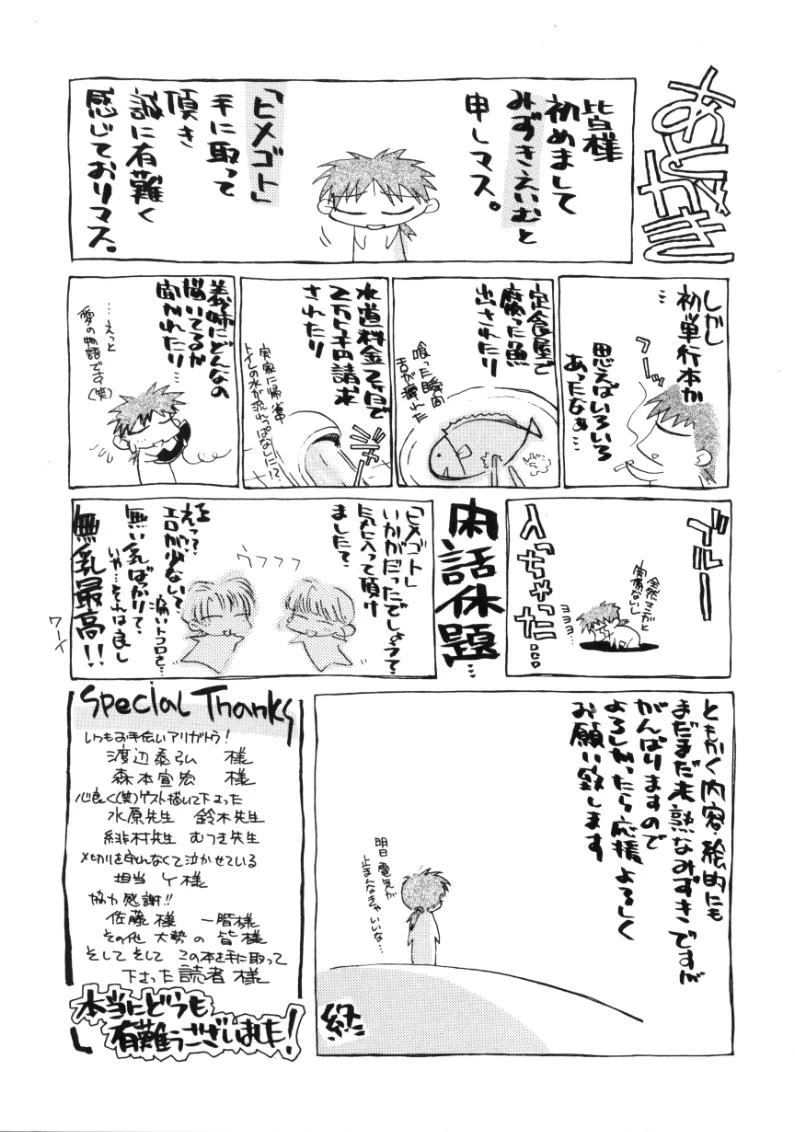 あとがき
皆様
初めまして
みずきえいむと
申しマス。
「ヒメゴト」
手に取って
頂き
誠に有難く
感じておりマス。
しかし
初単行本か
…
思えばいろいろ
あったなぁ…
フーッ
定食屋で
腐った魚
出されたり
喰った瞬間
舌が痺れた
水道料金2ヶ月で
2万5千円請求
されたり
実家に帰省中
トイレの水が流れっぱなしに!?
ジャー
義姉にどんなの
描いてるか
聞かれたり…
…えっと
愛の物語です(笑)
ブルー
入っちゃった…
全然マンガと
関係ないし
ヨヨヨ…
閑話休題…
「ヒメゴト」
いかがだったでしょうて
気に入って頂け
ましたて
ウフフフ
えって
エロが少ないて
痛いトコロを…
無い乳ばっかりて
いや…それは良し
無乳最高!!
ワーイ
ともかく内容・絵的にも
まだまだ未熟なみずきですが
がんばりますので
よろしかったら応援よろしく
お願い致します
明日電気が
止まんなきゃいいな…
終
Special Thanks
いつもお手伝いアリガトウ!
渡辺泰弘 様
森本宣宏 様
心良く(笑)ゲスト描いて下さった
水原先生 鈴木先生
緋村先生 むつき先生
〆切りを守んなくて泣かせている
担当 Y様
協力感謝!!
佐藤様 一階様
その他 大勢の 皆様
そして そして この本を手に取って
下さった読者様
本当にどうも
有難うございました!